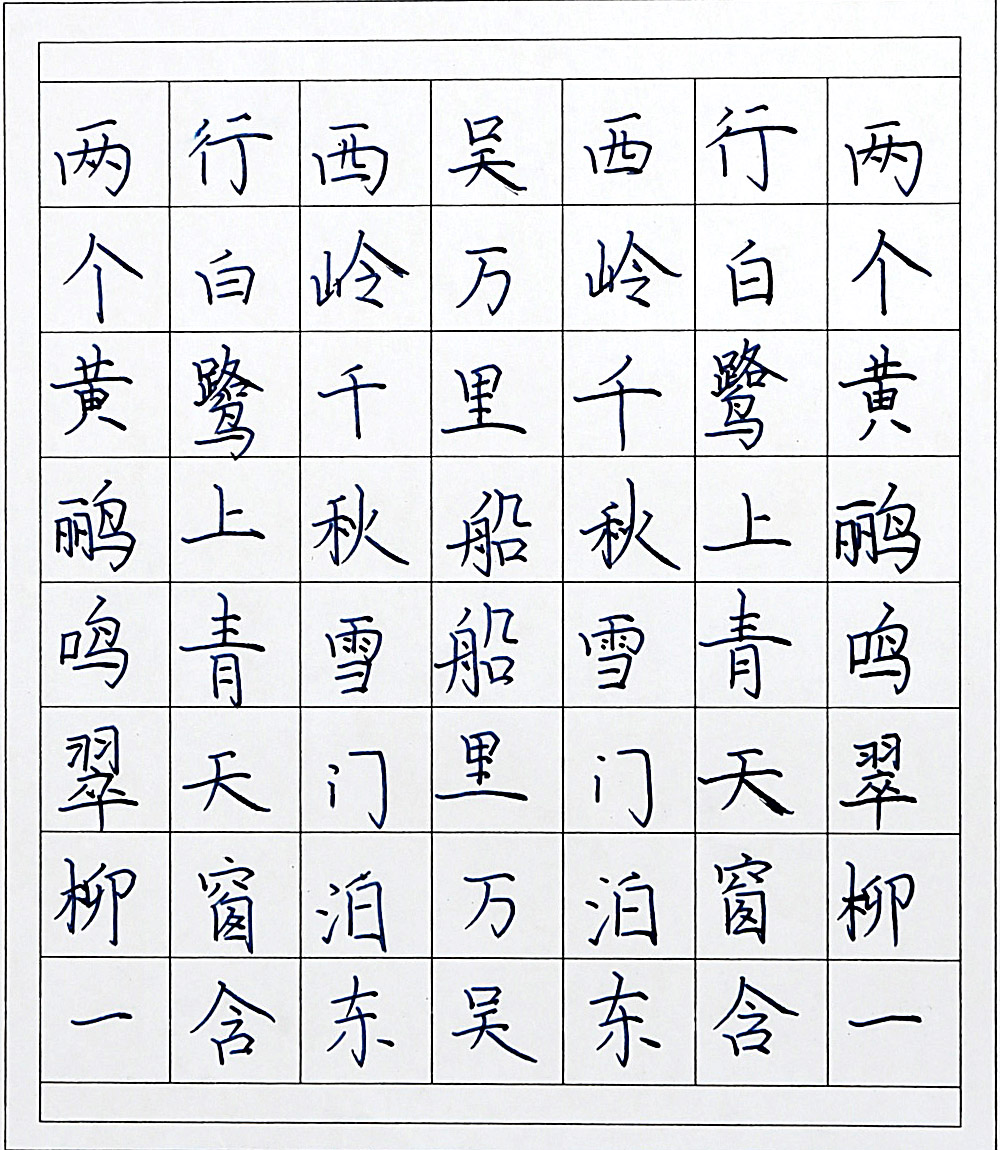 两个黄鹂鸣翠柳一
行白鹭上青天窗含
西岭千秋雪门泊东
吴万里船船里万吴
西岭千秋雪门泊东
行白鹭上青天窗含
两个黄鹂鸣翠柳一